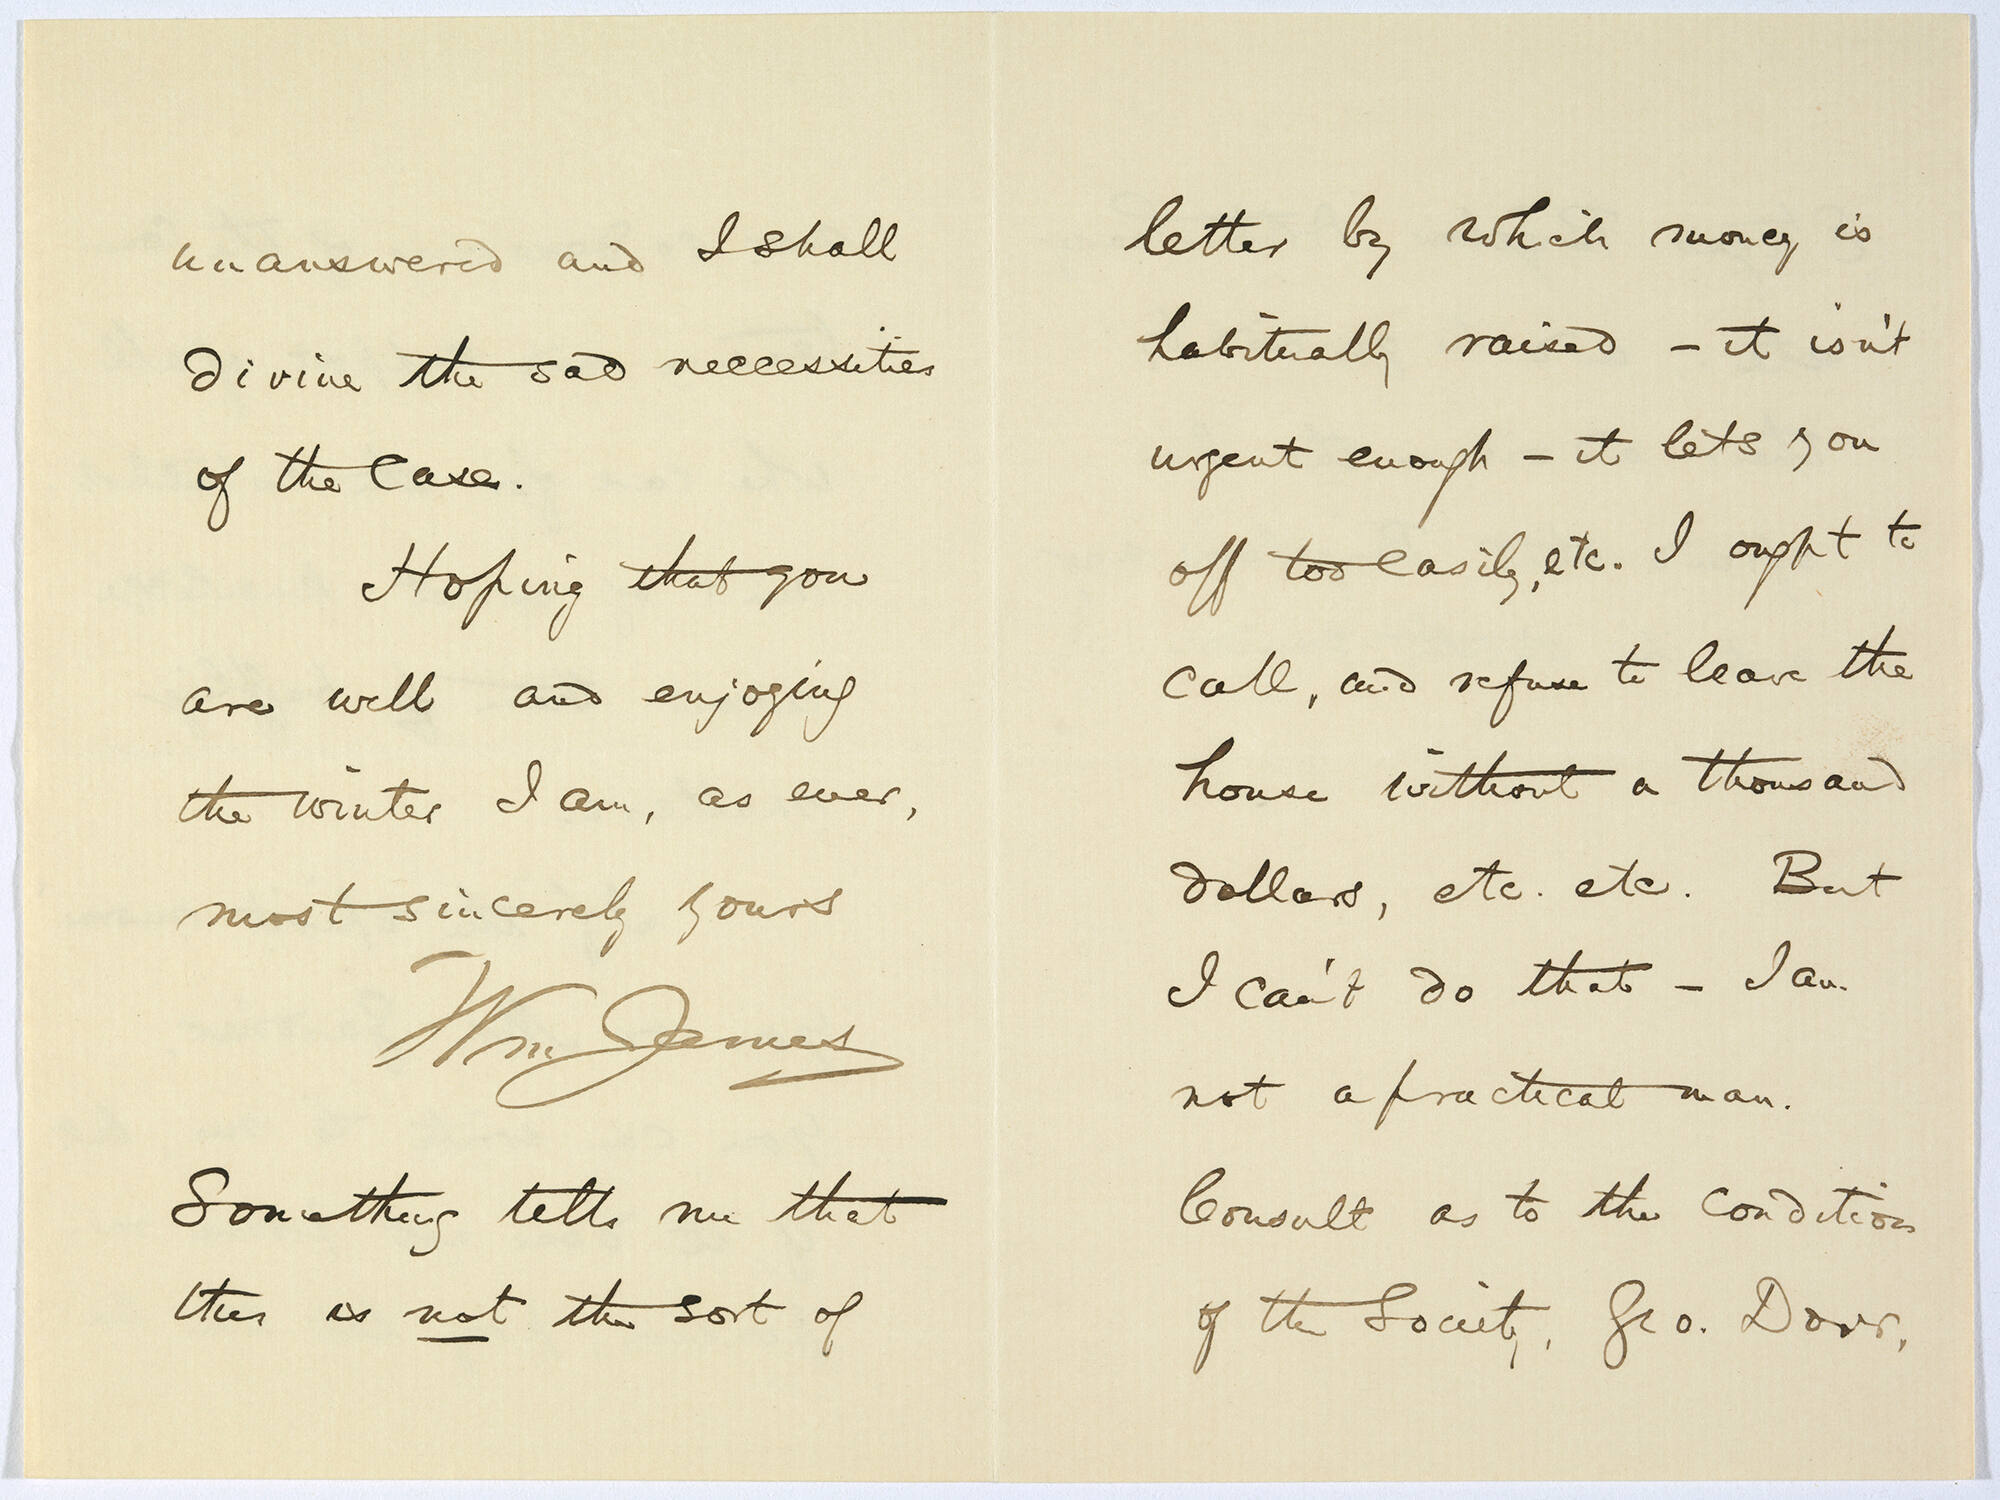 unanswered and I shall
divine the sad neccessities
of the case.
Hoping that you
are well and enjoying
the winter I am, as ever,
most sincerely yours
Wm James
Something tells me that
this is not the sort of
letter by which money is
habitually raised – it isn't
urgent enough – it lets you
off too easily, etc. I ought to
call, and refuse to leave the
house without a thousand
dollars, etc. etc. But
I can't do that – I am
not a practical man.
Consult as to the condition
of the Society, Geo. Dorr,